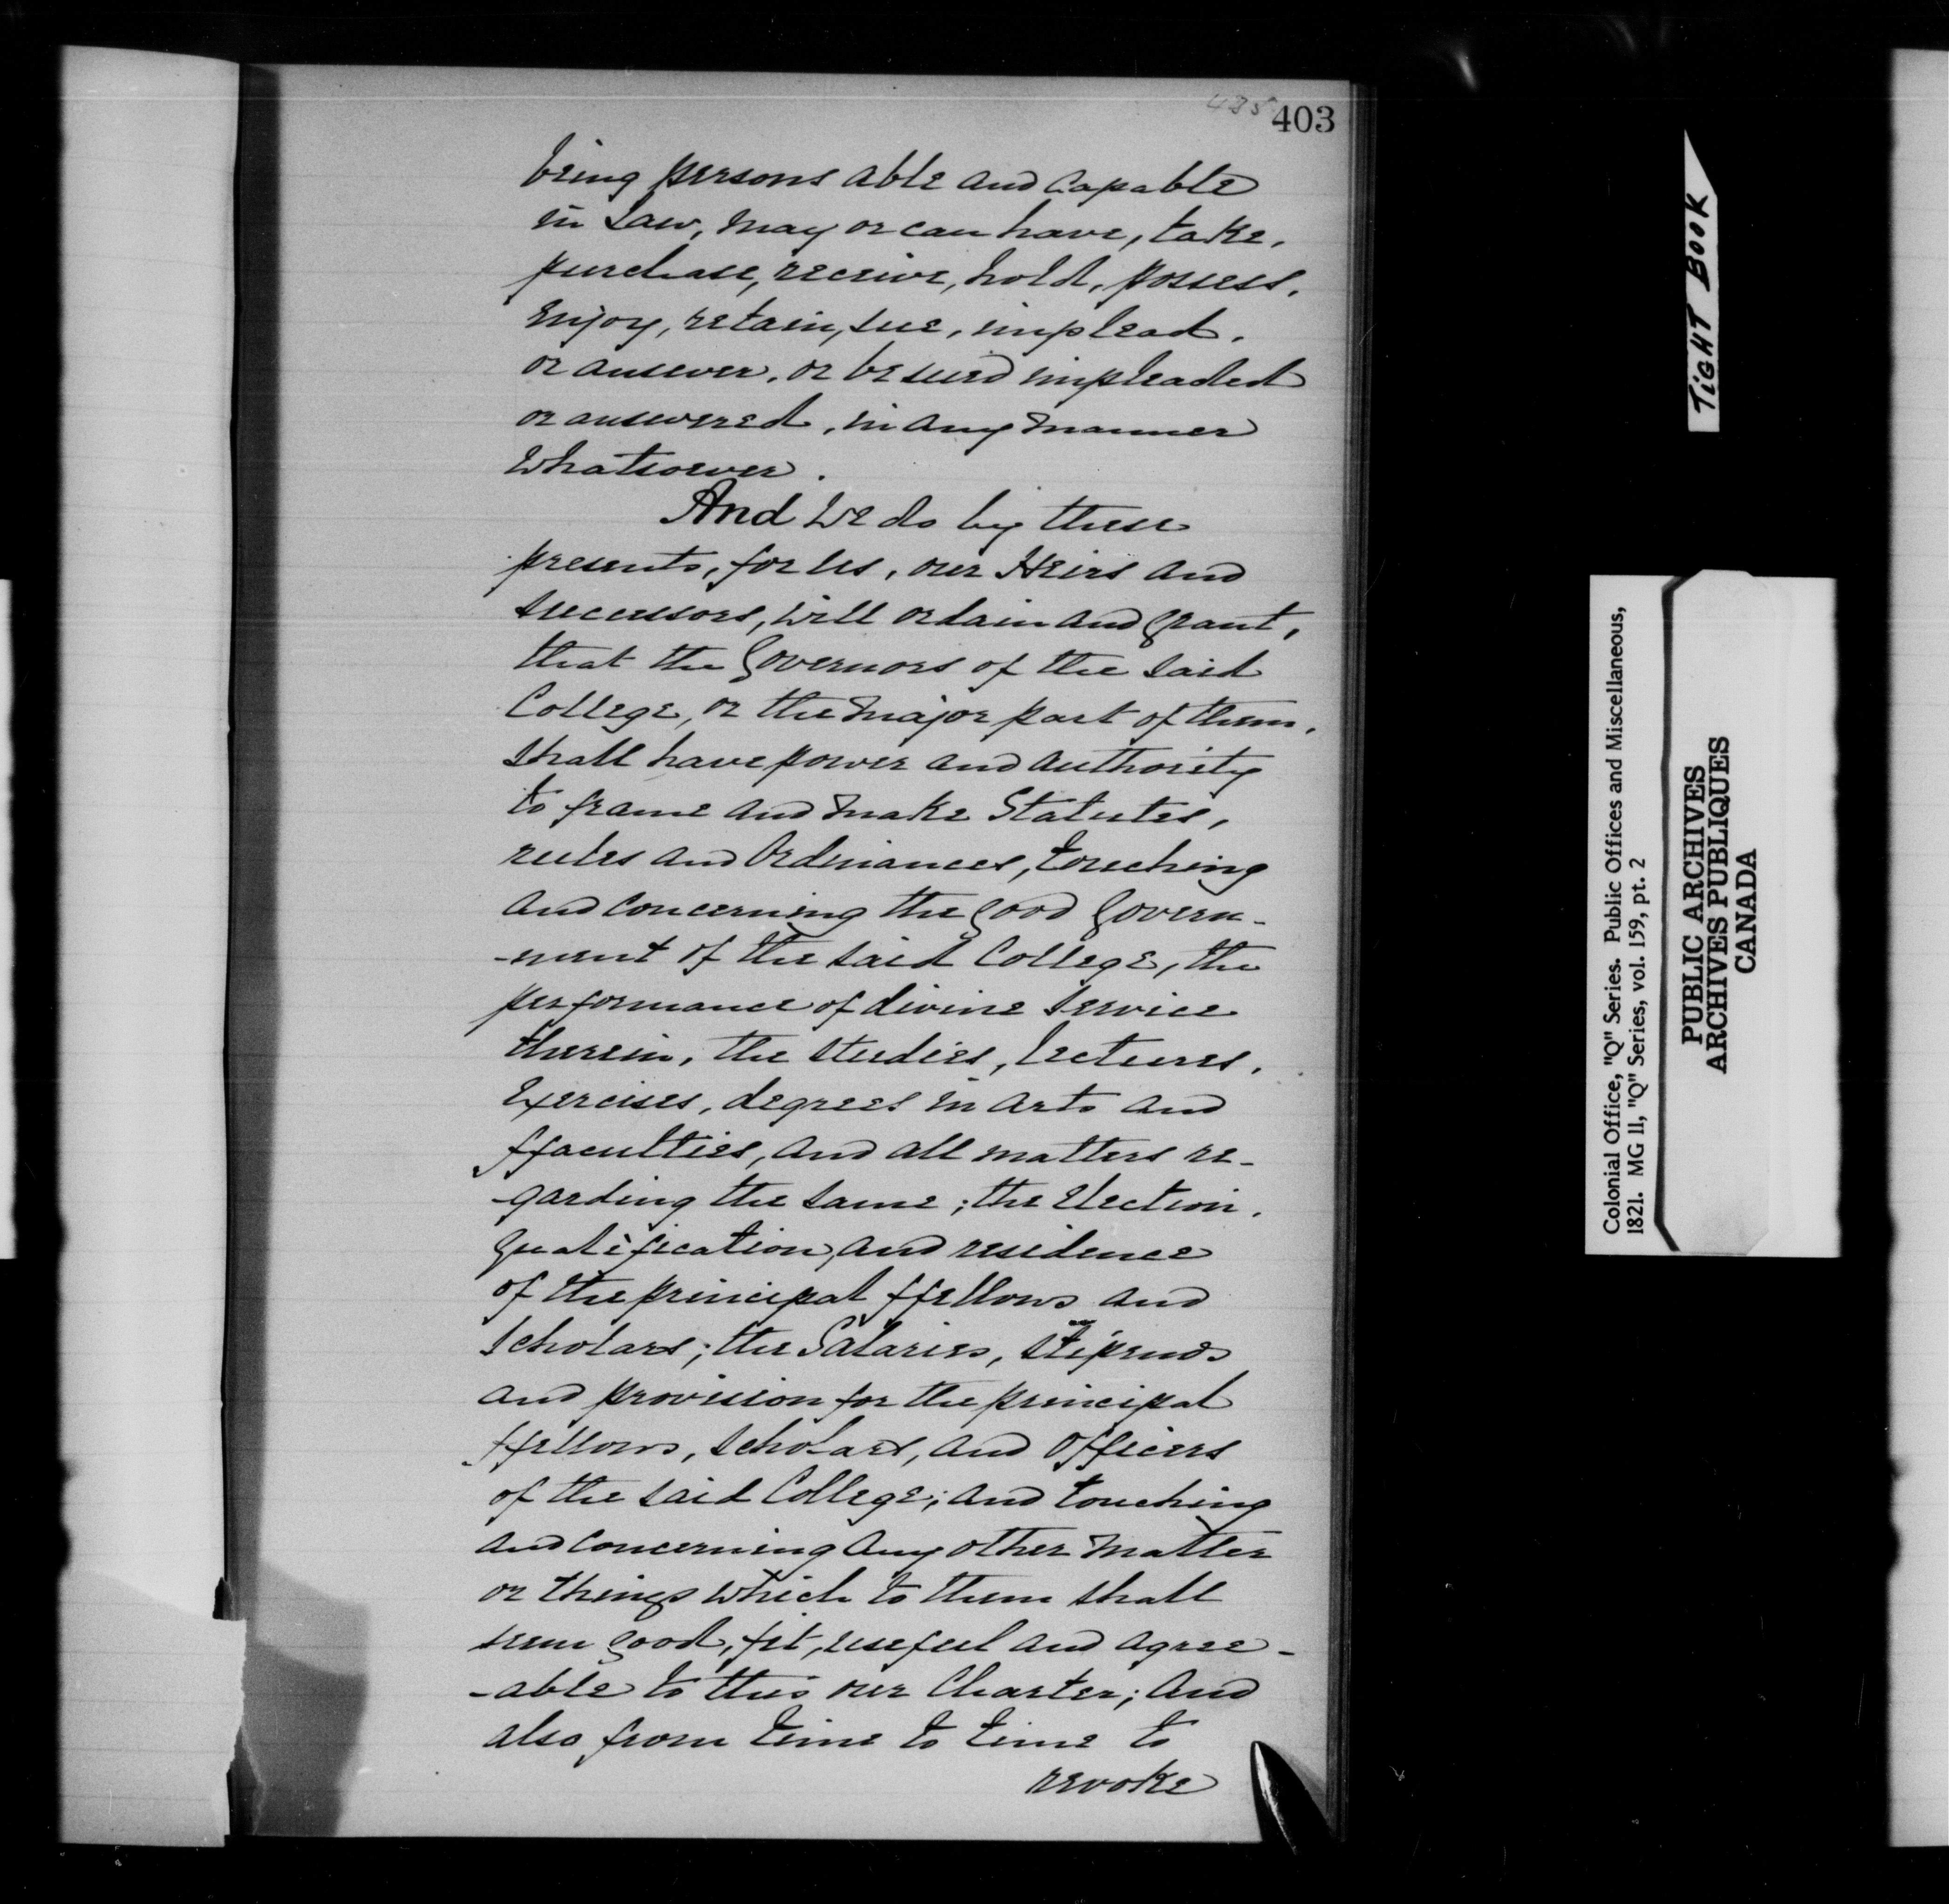 485
403
being persons able and capable
in Law, may or can have, take,
purchase, receive, hold, possess,
enjoy, retain, sue, implead,
or answer, or be sued impleaded
or answered, in any manner
whatsoever.
And we do by these
presents, for us, our Heirs and
successors, will ordain and grant,
that the Governors of the said
College, or the major part of them,
shall have power and authority
to frame and make Statutes,
rules and Ordinances, touching
and concerning the good Govern-
-ment of the said College, the
performance of divine service
therein, the studies, lectures,
Exercises, degrees in arts and
ffaculties, and all matters re-
-garding the same; the election,
qualification, and residence
of the principal ffellows and
scholars; the Salaries, stipends
and provision for the principal
ffellows, scholars, and officers
of the said College; and touching
and concerning any other matter
or things which to them shall
seem good, fit, useful and agree-
-able to this our Charter; and
also from time to time to
revoke
TIGHT BOOK
Colonial Office, "Q" Series. Public Offices and Miscellaneous,
1821. MG 11, "Q" Series, vol. 159, pt. 2
PUBLIC ARCHIVES
ARCHIVES PUBLIQUES
CANADA